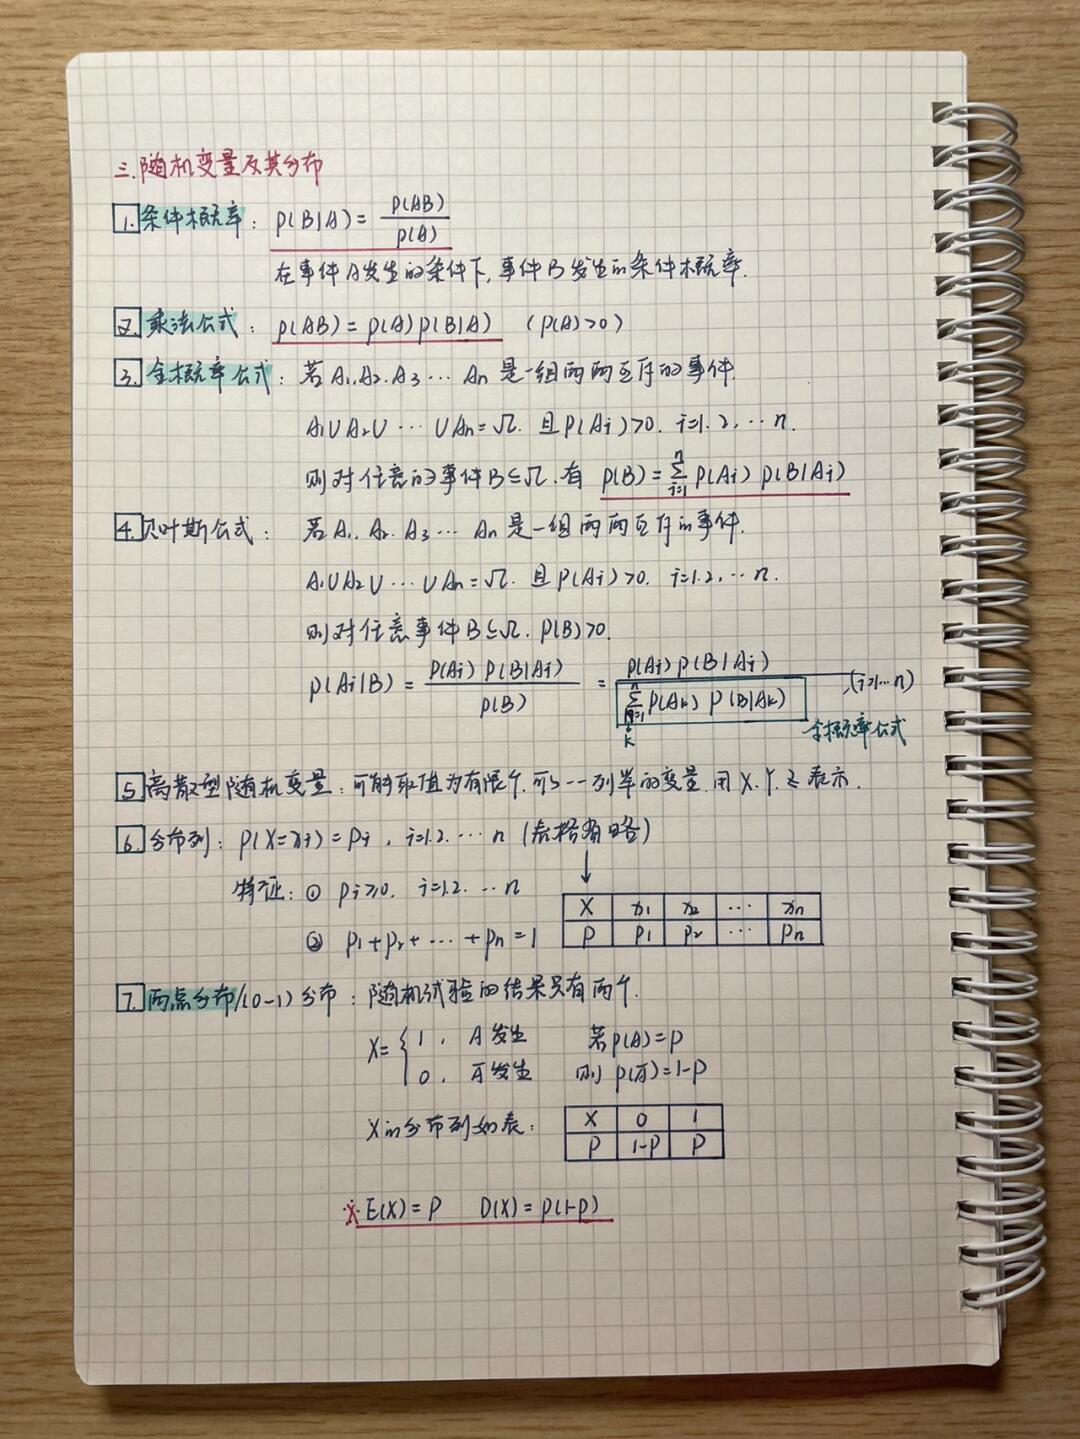 三.随机变量及其分布
1.条件概率: P(B|A)= P(AB)/P(A)
在事件A发生的条件下,事件B发生的条件概率.
2.乘法公式: P(AB)=P(A)P(B|A) (P(A)>0)
3.全概率公式: 若A₁.A₂.A₃⋯Aₙ是一组两两互斥的事件.
A₁∪A₂∪⋯∪Aₙ=Ω.且P(Aᵢ)>0. i=1.2.⋯n.
则对任意的事件B⊆Ω.有 P(B)=∑ⁿᵢ₌₁P(Aᵢ)P(B|Aᵢ)
4.贝叶斯公式: 若A₁.A₂.A₃⋯Aₙ是一组两两互斥的事件.
A₁∪A₂∪⋯∪Aₙ=Ω.且P(Aᵢ)>0. i=1.2.⋯n.
则对任意事件B⊆Ω.P(B)>0.
P(Aᵢ|B)= P(Aᵢ)P(B|Aᵢ)/P(B) = P(Aᵢ)P(B|Aᵢ)/∑ⁿₖ₌₁P(Aₖ)P(B|Aₖ) ,(i=1⋯n)
k 全概率公式
5.离散型随机变量:可能取值为有限个.可以一一列举的变量.用X.Y.Z表示.
6.分布列: P(X=xᵢ)=Pᵢ, i=1.2.⋯n (表格省略)
↓
特征: ① Pᵢ≥0. i=1.2.⋯n
X x₁ x₂ ⋯ xₙ
② P₁+P₂+⋯+Pₙ=1
P P₁ P₂ ⋯ Pₙ
7.两点分布/(0-1)分布: 随机试验的结果只有两个.
X={ 1, A发生 若P(A)=P
0, A̅发生 则P(A̅)=1-P
X的分布列如表:
X 0 1
P 1-P P
※ E(X)=P D(X)=P(1-P)